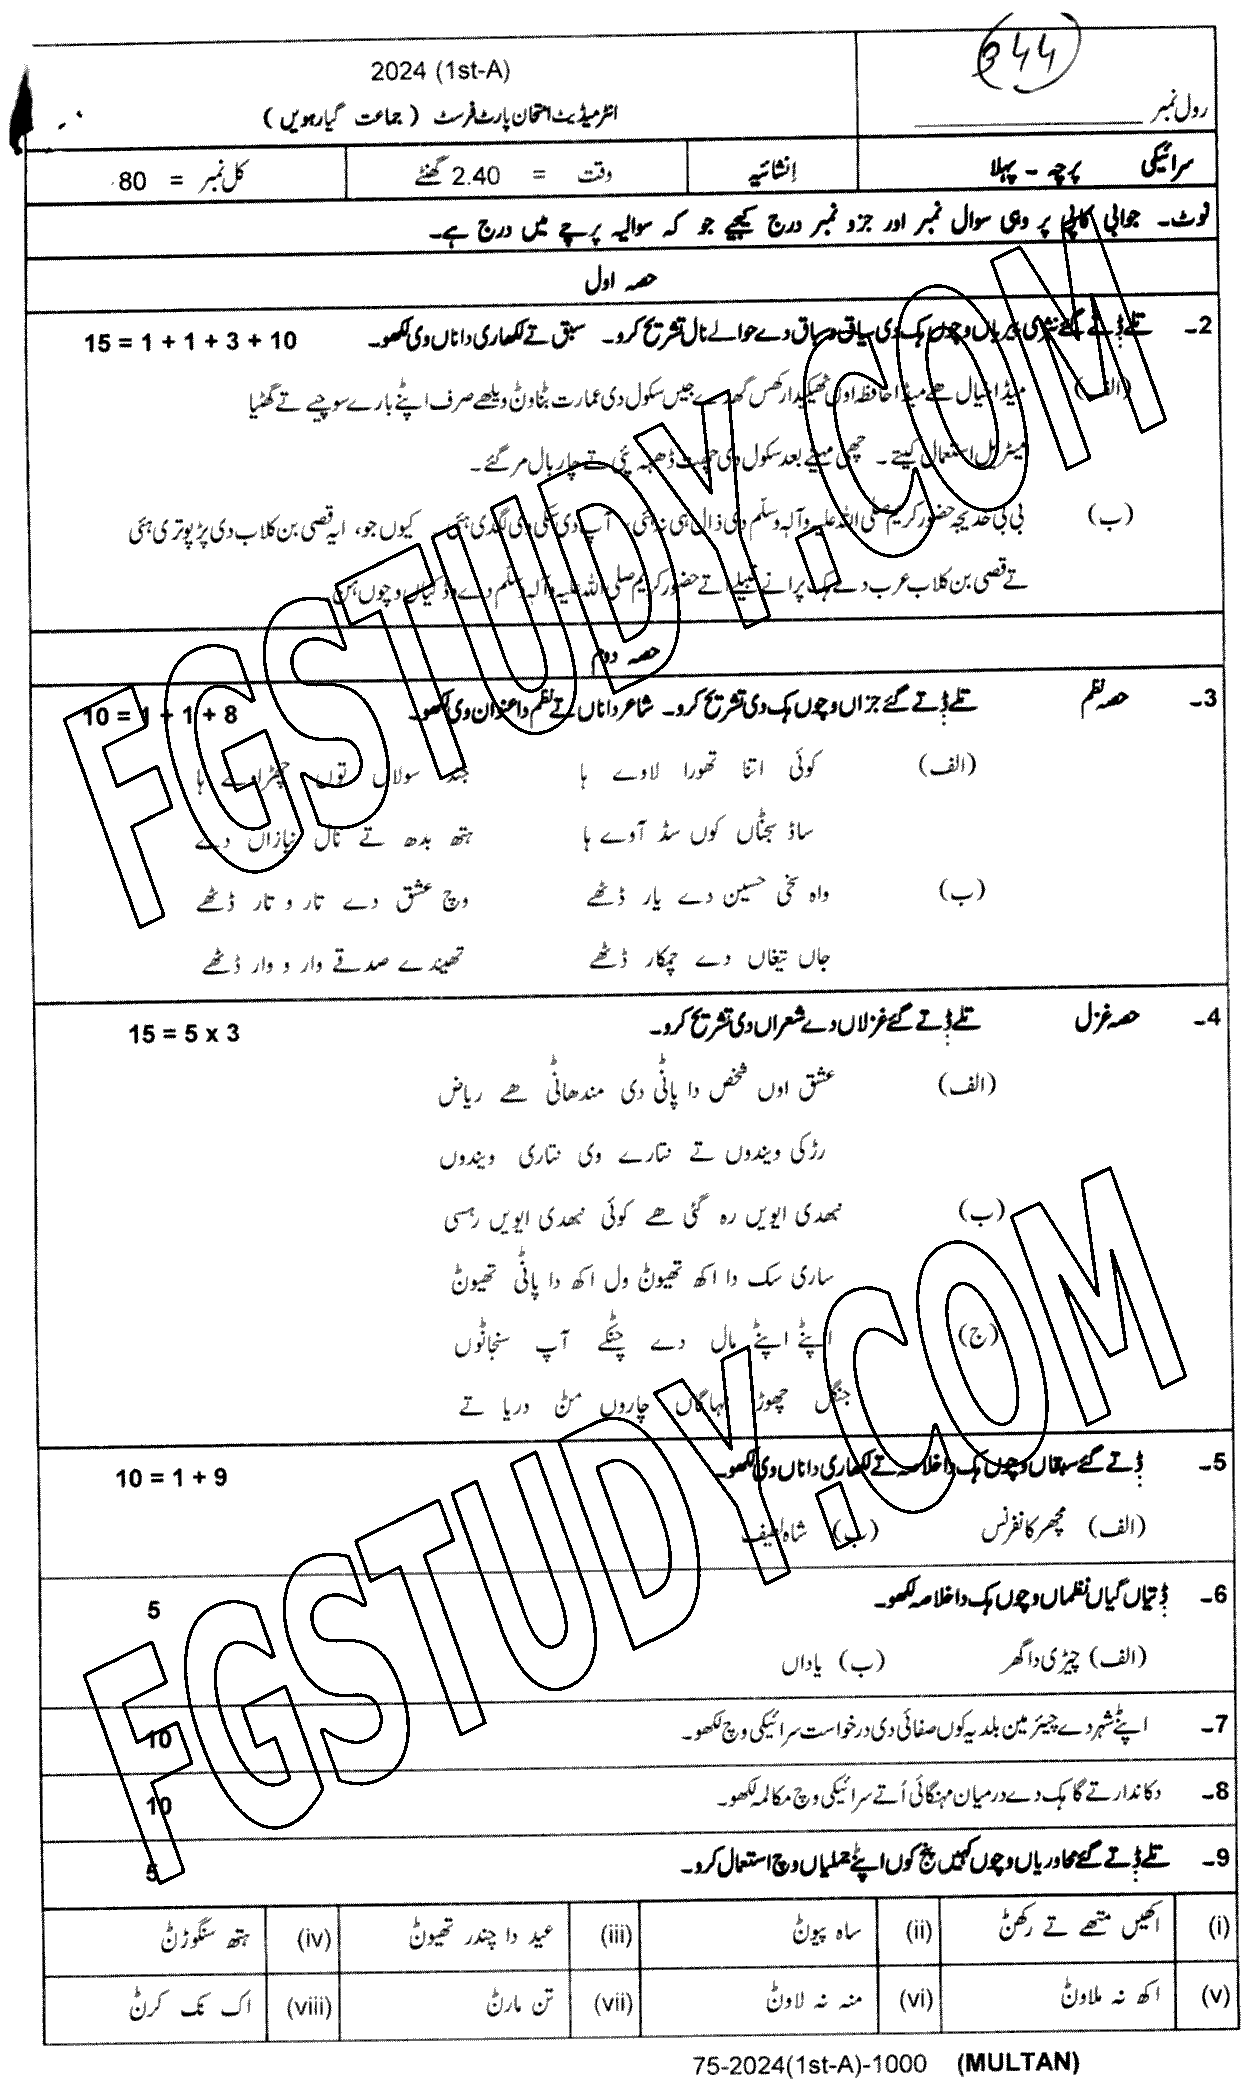 344
2024 (1st-A)
رول نمبر
انٹرمیڈیٹ امتحان پارٹ فرسٹ ( جماعت گیارہویں )
سرائیکی پرچہ - پہلا انشائیہ وقت = 2.40 گھنٹے کل نمبر = 80
نوٹ۔ جوابی کاپی پر وہی سوال نمبر اور جزو نمبر درج کیجیے جو کہ سوالیہ پرچے میں درج ہے۔
حصہ اول
2۔ تلے ڈتے گئے نثری پیریاں وچوں ہک دی سیاق و سباق دے حوالے نال تشریح کرو۔ سبق تے لکھاری داناں وی لکھو۔ 15 = 1 + 1 + 3 + 10
(الف) میڈا خیال ھے میڈا حافظہ اوں ٹھیکیدار کھس گھدے جیں سکول دی عمارت بݨاوݨ ویلھے صرف اپݨے بارے سوچیے تے گھٹیا
میٹریل استعمال کیتے۔ چھی مہینے بعد سکول دی چھت ڈھہہ پئی تے چار بال مر گئے۔
(ب) بی بی خدیجہ حضور کریم صلی اللہ علیہ وآلہ وسلّم دی ذال ہی نہ ہئی، آپ دی سکی وی لگدی ہئی کیوں جو، ایہ قصی بن کلاب دی پڑپوتری ہئی
تے قصی بن کلاب عرب دے ہک پرانے قبیلے اتے حضور کریم صلی اللہ علیہ وآلہ وسلّم دے وڈکیاں وچوں ہن۔
حصہ دوم
3۔ حصہ نظم تلے ڈتے گئے جزاں وچوں ہک دی تشریح کرو۔ شاعر داناں تے نظم دا عنوان وی لکھو۔ 10 = 1 + 1 + 8
(الف) کوئی اتنا تھورا لاوے ہا جند سولاں توں چھڑاوے ہا
ساڈ سجݨاں کوں سڈ آوے ہا ہتھ بدھ تے نال نیازاں دے
(ب) واہ سخی حسین دے یار ڈٹھے وچ عشق دے تار و تار ڈٹھے
جاں تیغاں دے چمکار ڈٹھے تھیندے صدقے وار و وار ڈٹھے
4۔ حصہ غزل تلے ڈتے گئے غزلاں دے شعراں دی تشریح کرو۔ 15 = 5 x 3
(الف) عشق اوں شخص دا پاݨی دی مندھاݨی ھے ریاض
رڑکی ویندوں تے نتارے وی نتاری ویندوں
(ب) نبھدی ایویں رہ گئی ھے کوئی نبھدی ایویں رہسی
ساری سک دا اکھ تھیوݨ ول اکھ دا پاݨی تھیوݨ
(ج) اپݨے اپݨے مال دے چݨکے آپ سنجاݨوں
جنگل چھوڑ بہاگاں چاروں مݨ دریا تے
5۔ ڈتے گئے سبقاں وچوں ہک دا خلاصہ تے لکھاری داناں وی لکھو۔ 10 = 1 + 9
(الف) مچھر کانفرنس (ب) شاہ لطیف
6۔ ڈتیاں گیاں نظماں وچوں ہک دا خلاصہ لکھو۔ 5
(الف) چیڑی دا گھر (ب) یاداں
7۔ اپݨے شہر دے چیئرمین بلدیہ کوں صفائی دی درخواست سرائیکی وچ لکھو۔ 10
8۔ دکاندار تے گاہک دے درمیان مہنگائی اُتے سرائیکی وچ مکالمہ لکھو۔ 10
9۔ تلے ڈتے گئے محاوریاں وچوں کہیں پنج کوں اپݨے جملیاں وچ استعمال کرو۔ 5
(i) اکھیں متھے تے رکھݨ (ii) ساہ پیوݨ (iii) عید دا چندر تھیوݨ (iv) ہتھ سنگوڑݨ
(v) اکھ نہ ملاوݨ (vi) منہ نہ لاوݨ (vii) تن مارݨ (viii) اک تک کرݨ
75-2024(1st-A)-1000 (MULTAN)
FGSTUDY.COM
FGSTUDY.COM